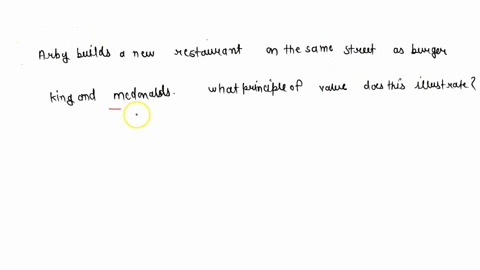 Arby builds a new restaurant on the same street as burger
king and mcdonalds. what principle of value does this illustrate?